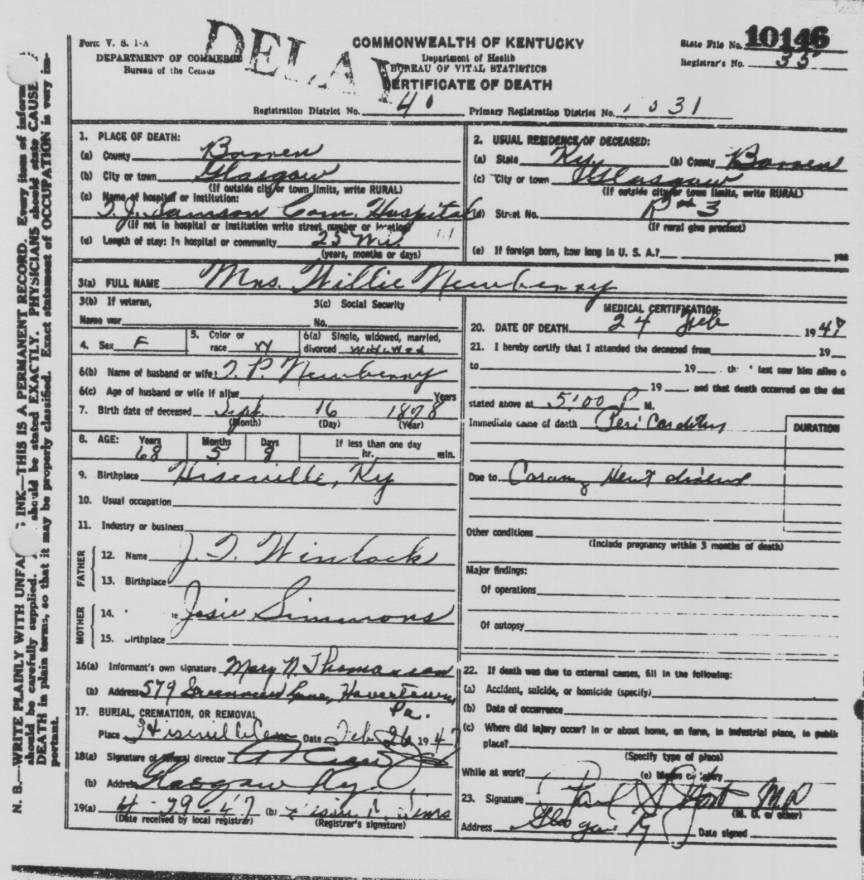 Form V. S. 1-A
DEPARTMENT OF COMMERCE
Bureau of the Census
DELAY
COMMONWEALTH OF KENTUCKY
Department of Health
BUREAU OF VITAL STATISTICS
CERTIFICATE OF DEATH
State File No. 10146
Registrar's No. 35
Registration District No. 40 Primary Registration District No. 1031
N. B.—WRITE PLAINLY WITH UNFA INK—THIS IS A PERMANENT RECORD. Every item of inform
should be carefully supplied. should be stated EXACTLY. PHYSICIANS should state CAUSE
DEATH in plain terms, so that it may be properly classified. Exact statement of OCCUPATION is very im-
portant.
1. PLACE OF DEATH:
(a) County Barren
(b) City or town Glasgow
(If outside city or town limits, write RURAL)
(c) Name of hospital or institution:
T. J. Samson Com. Hospital
(If not in hospital or institution write street number or location)
(d) Length of stay: In hospital or community 25
(years, months or days)
2. USUAL RESIDENCE OF DECEASED:
(a) State Ky (b) County Barren
(c) City or town Glasgow
(If outside city or town limits, write RURAL)
(d) Street No. R 3
(If rural give precinct)
(e) If foreign born, how long in U. S. A.?
3(a) FULL NAME Mrs. Willie Newberry
3(b) If veteran,
Name war
3(c) Social Security
No.
4. Sex F
5. Color or
race W
6(a) Single, widowed, married,
divorced widowed
6(b) Name of husband or wife: T. P. Newberry
6(c) Age of husband or wife if alive Years
7. Birth date of deceased Sept 16 1878
(Month) (Day) (Year)
8. AGE: Years Months Days If less than one day
68 5 9 hr. min.
9. Birthplace Hiseville, Ky
10. Usual occupation
11. Industry or business
FATHER
12. Name J. T. Winlock
13. Birthplace
MOTHER
14. Josie Simmons
15. Birthplace
16(a) Informant's own signature Mary N Thomasson
(b) Address 579 Greenwood Lane, Havertown,
Pa.
17. BURIAL, CREMATION, OR REMOVAL
Place Hiseville Cem Date Feb 26 1947
18(a) Signature of funeral director
(b) Address Glasgow Ky
19(a) 4-29-47 (b)
(Date received by local registrar) (Registrar's signature)
MEDICAL CERTIFICATION
20. DATE OF DEATH 24 Feb 1947
21. I hereby certify that I attended the deceased from 19
to 19 last saw him alive o
19 and that death occurred on the dat
stated above at 5:00 P M.
Immediate cause of death Peri Carditis
DURATION
Due to Heart
Other conditions
(Include pregnancy within 3 months of death)
Major findings:
Of operations
Of autopsy
22. If death was due to external causes, fill in the following:
(a) Accident, suicide, or homicide (specify)
(b) Date of occurrence
(c) Where did injury occur? In or about home, on farm, in industrial place, in public
place?
(Specify type of place)
While at work? (e) Means of injury
23. Signature Paul MD
(M. D. or other)
Address Glasgow Ky Date signed